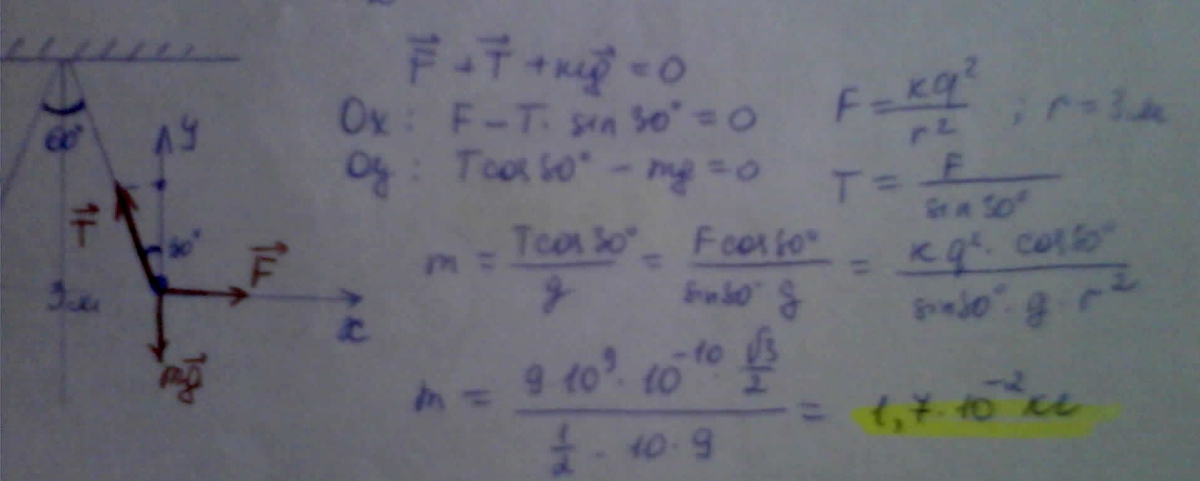 60°
y
T⃗
30°
F⃗
3 м
x
mg⃗
F⃗ + T⃗ + mg⃗ = 0
Ox: F − T · sin 30° = 0
Oy: T cos 30° − mg = 0
F = kq² / r² ; r = 3 м
T = F / sin 30°
m = T cos 30° / g = F cos 30° / sin 30° g = kq² · cos 30° / sin 30° · g · r²
m = 9·10⁹ · 10⁻¹⁰ · √3/2 / 1/2 · 10 · 9 = 1,7·10⁻² кг